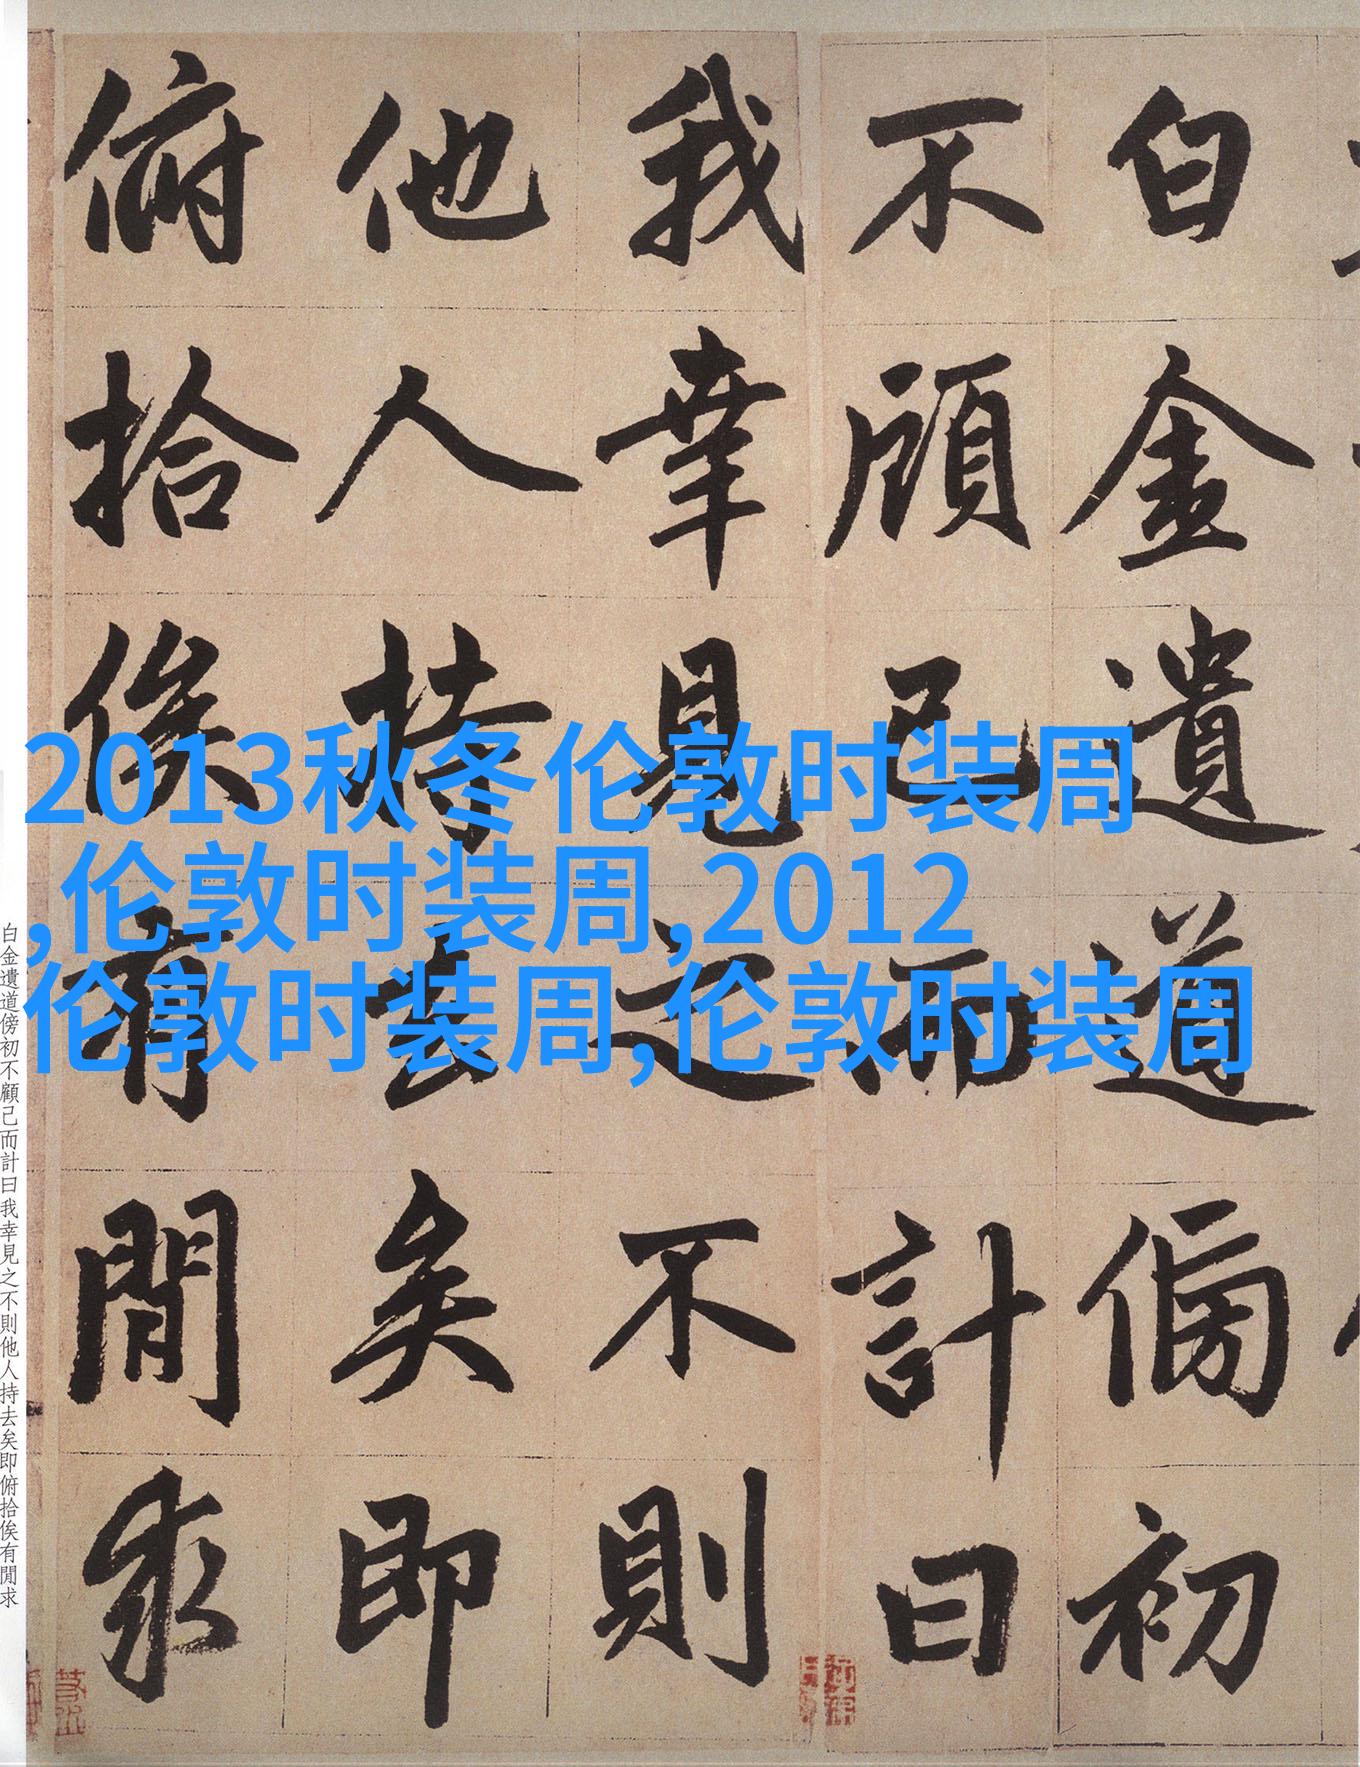 白金遺道傍初
不顧己而計曰
我幸見之不則
他人持去矣即
俯拾俟有閒求
2013秋冬伦敦时装周
,伦敦时装周,2012
伦敦时装周,伦敦时装周
白金遺道傍初不顧己而計曰我幸見之不則他人持去矣即俯拾俟有閒求